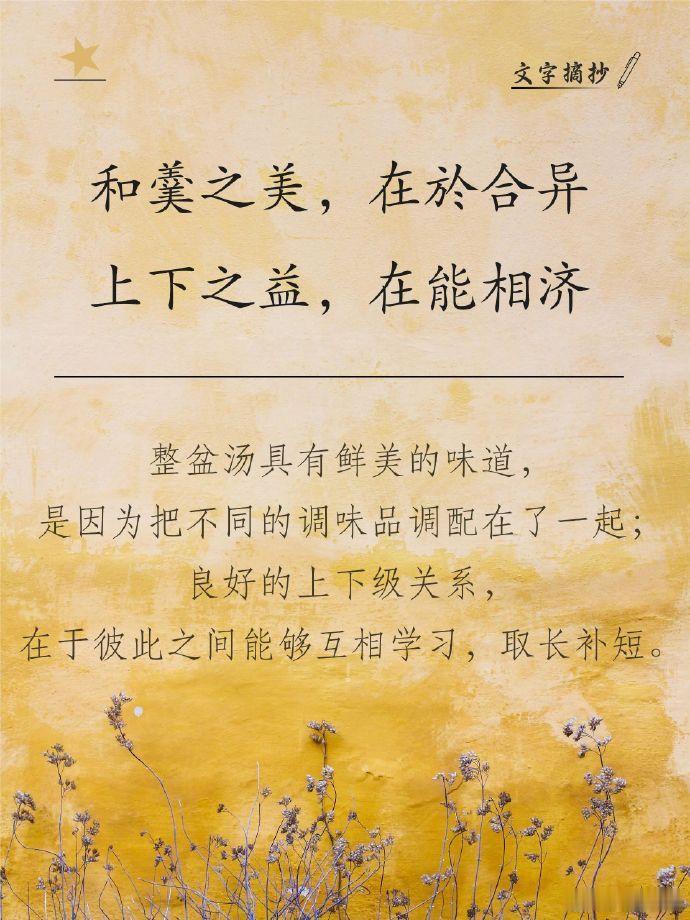 文字摘抄
和羹之美，在於合异
上下之益，在能相济
整盆汤具有鲜美的味道，
是因为把不同的调味品调配在了一起；
良好的上下级关系，
在于彼此之间能够互相学习，取长补短。